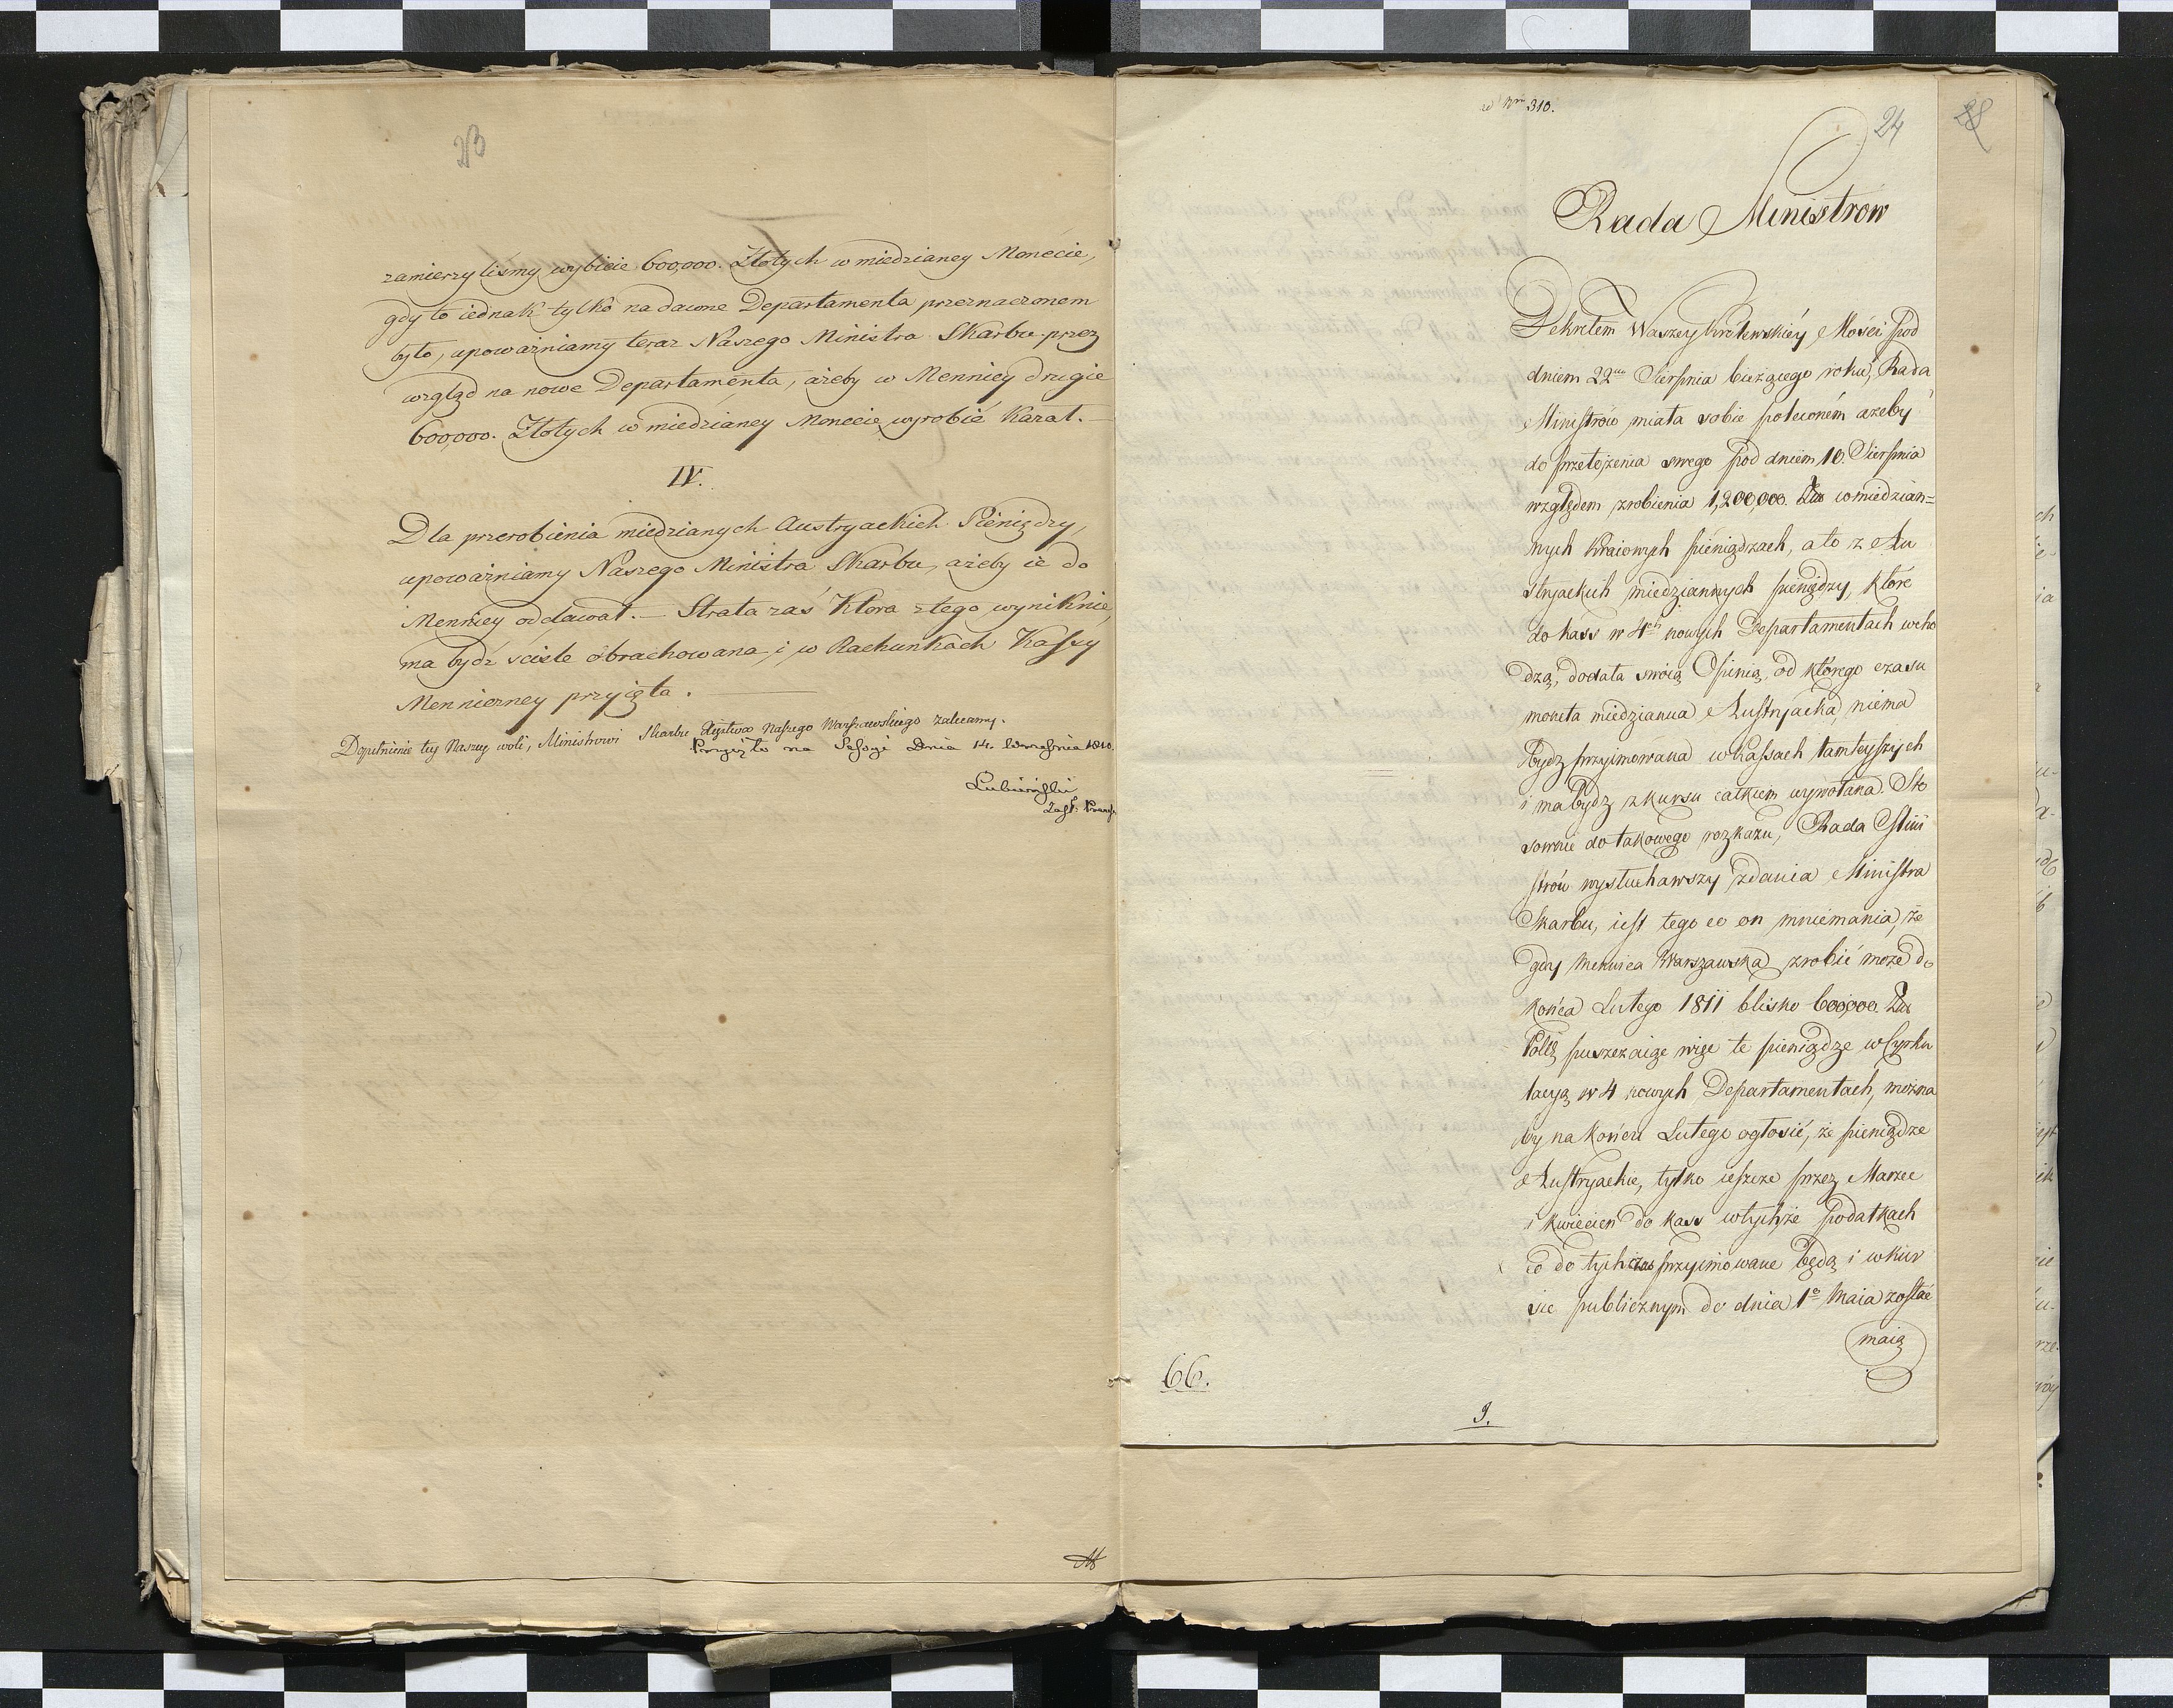 23
zamierzyliśmy wybicie 600,000. Złotych w miedzianey Monecie,
gdy to iednak tylko na dawne Departamenta przeznaczonem
było, upoważniamy teraz Naszego Ministra Skarbu przez
wzgląd na nowe Departamenta, ażeby w Mennicy drugie
600,000. Złotych w miedzianey Monecie wyrobić kazał. —
IV.
Dla przerobienia miedzianych Austryackich Pieniędzy,
upoważniamy Naszego Ministra Skarbu, ażeby ie do
Mennicy oddawał. — Strata zaś która z tego wyniknie,
ma bydź ściśle obrachowana i w Rachunkach Kassy
Menniczney przyięta. —
Dopełnienie tey Naszey woli, Ministrowi Skarbu Xięstwa Naszego Warszawskiego zalecamy.
Przyięto na Sessyi Dnia 14. Września 1810.
Lubieński
Zast: Prezesa
w Nrm 310.
24
28
Rada Ministrow
Dekretem Waszey Królewskiéy Mości pod
dniem 22m Sierpnia bieżącego roku, Rada
Ministrów miała sobie poleconém ażeby
do przełożenia swego pod dniem 10. Sierpnia
względem zrobienia 1,200,000. Złt w miedzian=
nych kraiowych pieniądzach, a to z Au
stryackich miedziannych pieniędzy, które
do kass w 4ch nowych Departamentach wcho
dzą, dodała swoią Opinią, od którego czasu
moneta miedzianna Austryacka niema
bydz przyimowana w kassach tamteyszych
i ma bydz z kursu całkiem wywołana. Sto
sownie do takowego rozkazu, Rada Mini
strów wysłuchawszy zdania Ministra
Skarbu, iest tego co on mniemania, że
gdy Mennica Warszawska zrobić może do
końca Lutego 1811 blisko 600,000. Złt
Pols puszczaiąc więc te pieniądze w Cyrku
lacyą w 4 nowych Departamentach, można
by na końcu Lutego ogłosić, że pieniądze
Austryackie, tylko ieszcze przez Marzec
i kwiecień do kass w tychże podatkach
co do tychczas przyimowane będą i w kur
sie publicznym do dnia 1o Maia zostać
maią
66.
9.